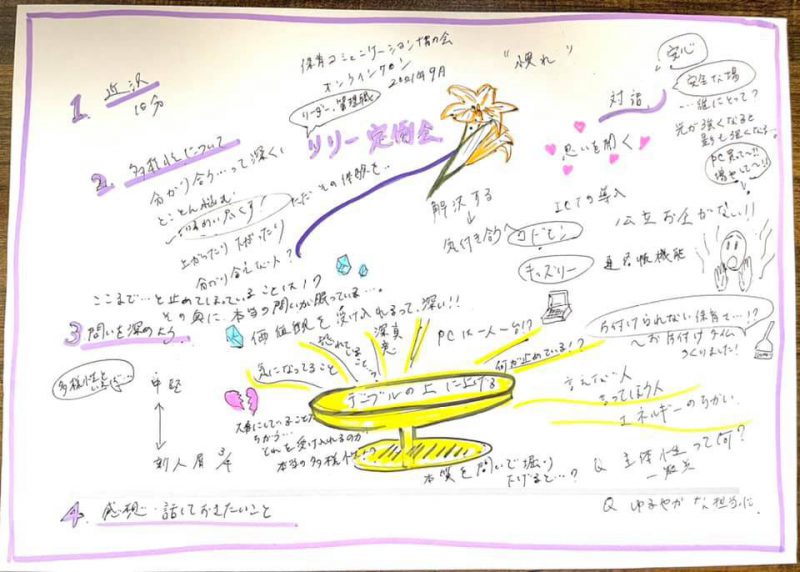 保育コミュニケーション協会
オンラインサロン
2021年9月
リーダー、管理職
リリー定例会
"慣れ"
安心
安全な場
…誰にとって?
光が強くなると
影も強くなる。
対話
思いを開く
1. 近況
10分
2. 多様性について
分かり合う…って深く
とことん悩む。
上がったり下がったり
分かり合えない人?
ただその体験を…
解決する
↓
気付き合う
ICTの導入
コドモン
キッズリー
PC買って〜!!
増やして〜!!
公立お金がない!!
連絡帳機能
ここまで…と止めてしまっていることは!?
その奥に、本当の問いが眠っている…。
3 問いを深めよう
価値観を受け入れるって、深い!!
気になってること
恐れてること
深真意
PCは一人一台!?
何が止めている!?
片付けられない保育士…!?
〜お片付けタイム
つくりました!
テーブルの上に上げる
多様性といえば…
中堅
↕
新人層 3/4
大事にしていることが
ちがう…
それを受け入れるのが
本当の多様性!?
言えない人
言ってほしい人
エネルギーのちがい
本質を問いで掘り
下げると…?
Q 主体性って何?
一致点
Q ゆるやかな担当に
4. 感想・話しておきたいこと